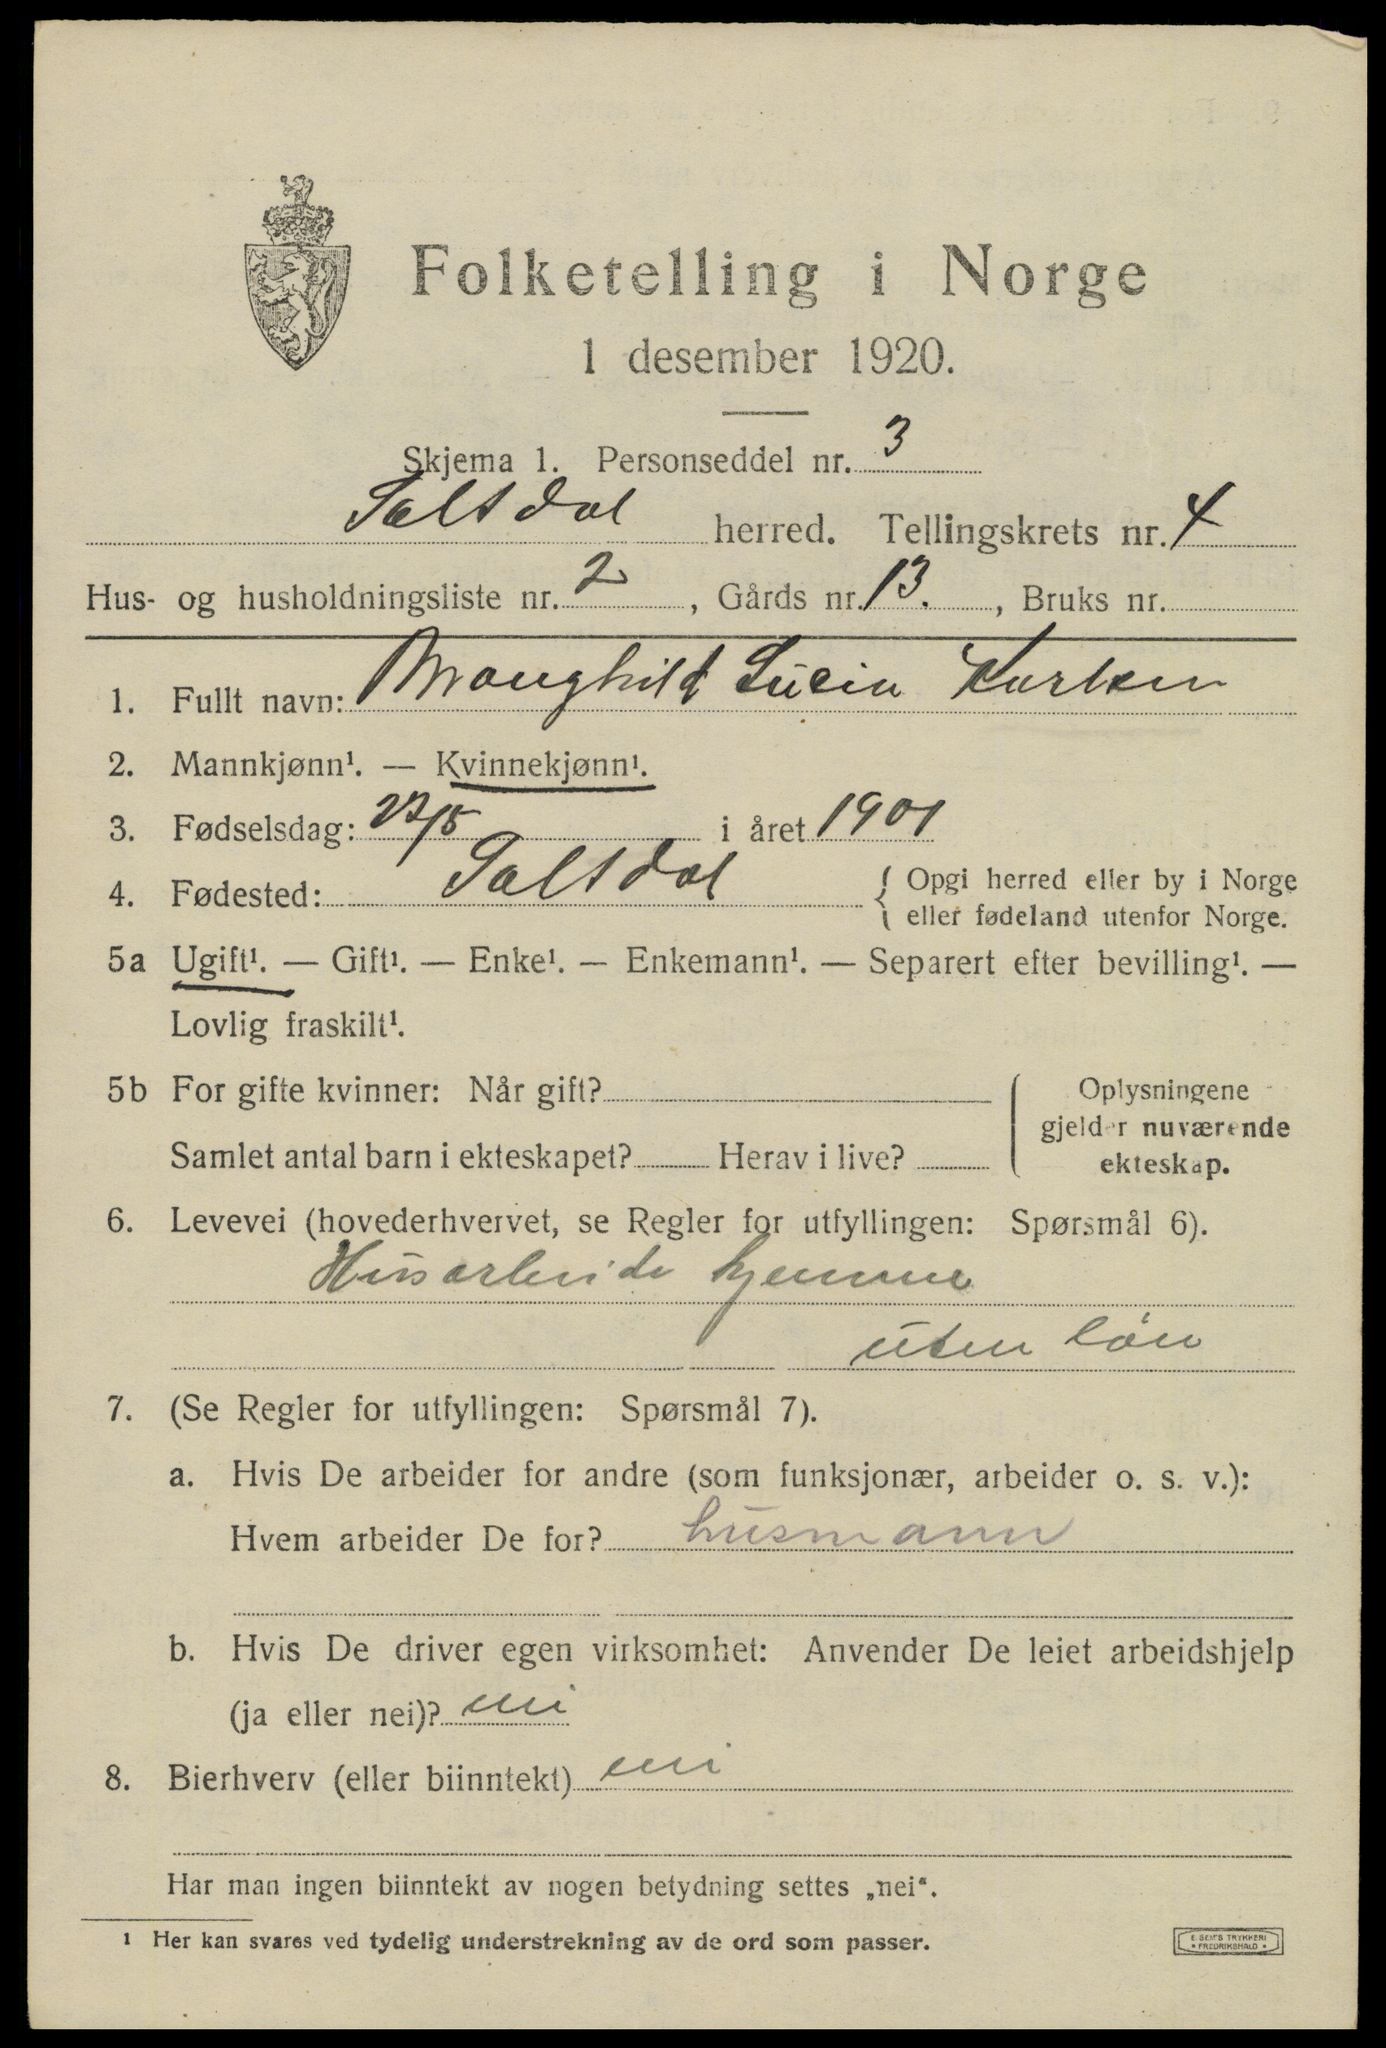 Folketelling i Norge
1 desember 1920.
Skjema 1. Personseddel nr. 3
Saltdal herred. Tellingskrets nr. 4
Hus- og husholdningsliste nr. 2, Gårds nr. 13., Bruks nr.
1. Fullt navn:
2. Mannkjønn¹. — Kvinnekjønn¹.
3. Fødselsdag: 27/5 i året 1901
4. Fødested: Saltdal { Opgi herred eller by i Norge
eller fødeland utenfor Norge.
5a Ugift¹. — Gift¹. — Enke¹. — Enkemann¹. — Separert efter bevilling¹. —
Lovlig fraskilt¹.
5b For gifte kvinner: Når gift? Oplysningene
gjelder nuværende
Samlet antal barn i ekteskapet? Herav i live? ekteskap.
6. Levevei (hovederhvervet, se Regler for utfyllingen: Spørsmål 6).
Husarbeide hjemme
uten løn
7. (Se Regler for utfyllingen: Spørsmål 7).
a. Hvis De arbeider for andre (som funksjonær, arbeider o. s. v.):
Hvem arbeider De for? husmann
b. Hvis De driver egen virksomhet: Anvender De leiet arbeidshjelp
(ja eller nei)? nei
8. Bierhverv (eller biinntekt) nei
Har man ingen biinntekt av nogen betydning settes „nei“.
¹ Her kan svares ved tydelig understrekning av de ord som passer.
E. SEM'S TRYKKERI
• FREDRIKSHALD •